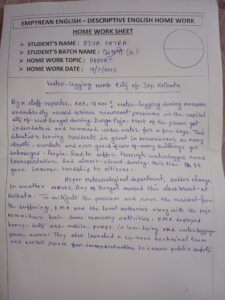 EMPYREAN ENGLISH – DESCRIPTIVE ENGLISH HOME WORK
HOME WORK SHEET
➢ STUDENT'S NAME : RIYA PATRA
➢ STUDENT'S BATCH NAME :
➢ HOME WORK TOPIC : REPORT
➢ HOME WORK DATE :
Water-logging made City of Joy, Kolkata
By a staff reporter, ABC, Water-logging during monsoon
undoubtedly caused serious problems in the capital
city of West Bengal during Durga Puja. Most of the places got
inundated and remained under water for a few days. This
situation leaving residents in great inconvenience as many
streets, markets and even ground floor of many buildings got
submerged. People had to suffer through waterlogged roads
transportation had almost paused during this time. It
gave immense hardship to citizens.
As per meteorological department, sudden change
in weather around Bay of Bengal caused this at
Kolkata. To mitigate the problem and save the resident from
the suffering, KMC and the local authorities along with the puja
committees took some necessary activities. KMC deployed
heavy-duty and mobile pumps in low-lying and waterlogging
prone areas. They also launched a technical team
and control room to ensure public safety